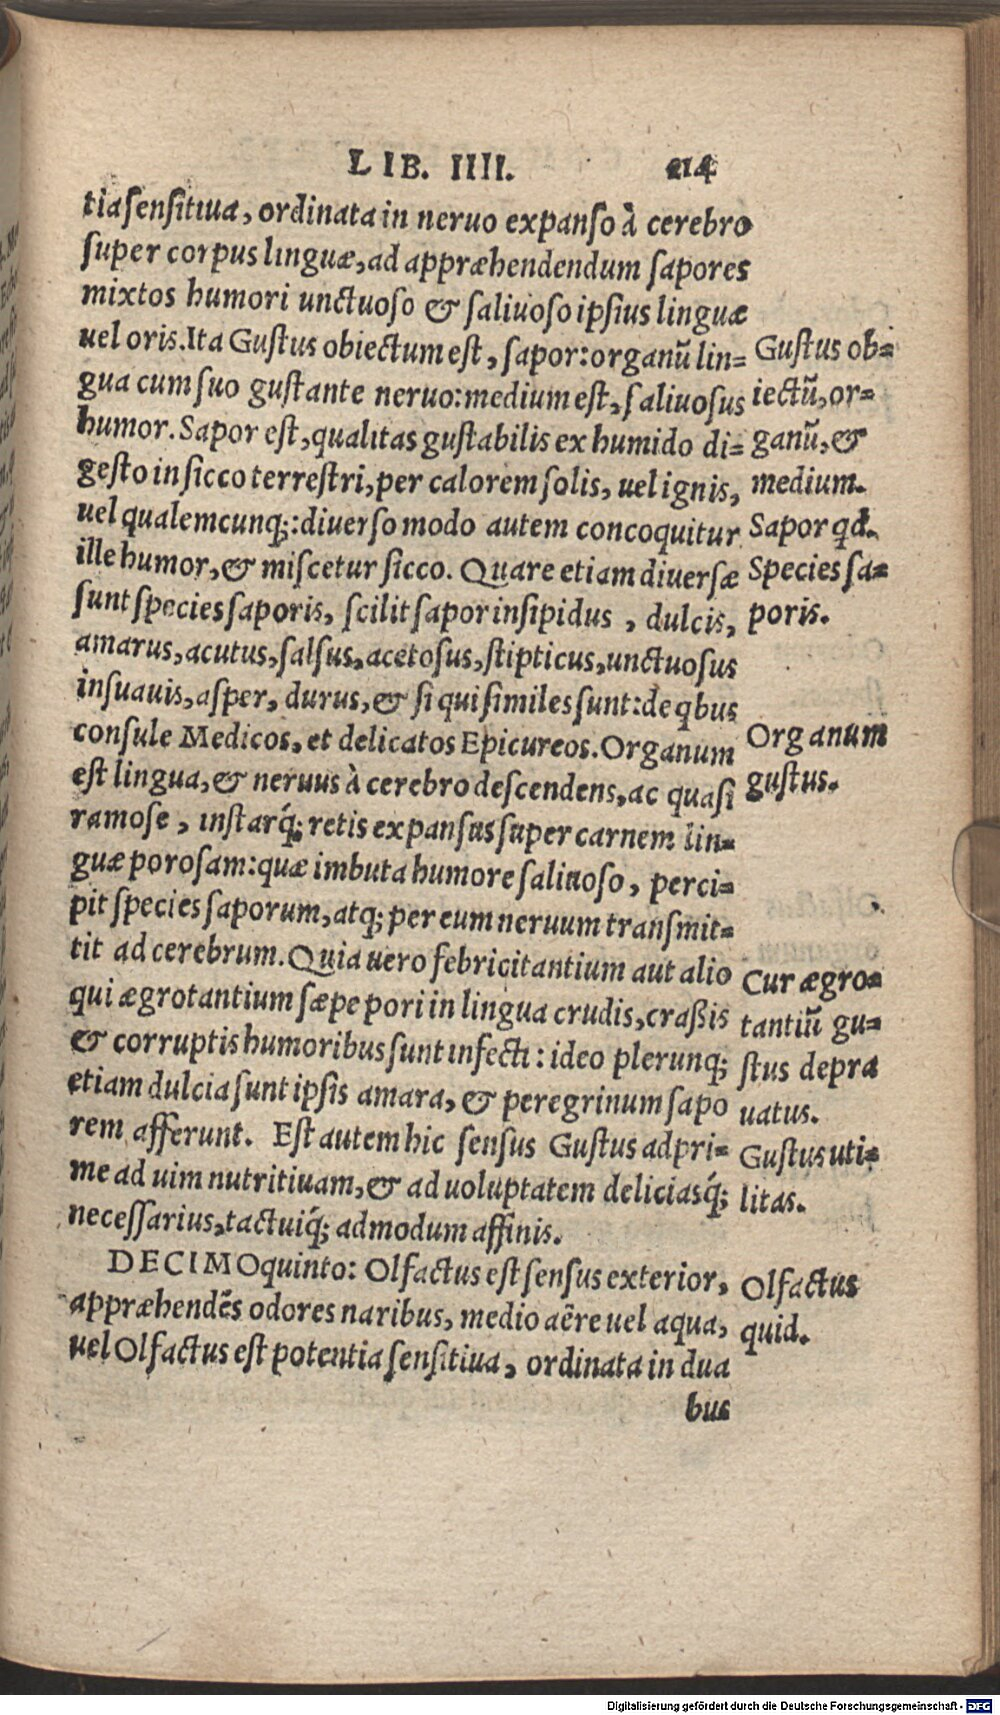 LIB. IIII. 214
tia sensitiua, ordinata in neruo expanso à cerebro
super corpus linguæ, ad appræhendendum sapores
mixtos humori unctuoso & saliuoso ipsius linguæ
uel oris. Ita Gustus obiectum est, sapor: organũ lin=
gua cum suo gustante neruo: medium est, saliuosus
humor. Sapor est, qualitas gustabilis ex humido di=
gesto in sicco terrestri, per calorem solis, uel ignis,
uel qualemcunq;: diuerso modo autem concoquitur
ille humor, & miscetur sicco. Quare etiam diuersæ
sunt species saporis, scilit sapor insipidus, dulcis,
amarus, acutus, salsus, acetosus, stipticus, unctuosus
insuauis, asper, durus, & si qui similes sunt: de qbus
consule Medicos, et delicatos Epicureos. Organum
est lingua, & neruus à cerebro descendens, ac quasi
ramose, instarq́; retis expansus super carnem lin=
guæ porosam: quæ imbuta humore saliuoso, perci=
pit species saporum, atq; per eum neruum transmit=
tit ad cerebrum. Quia uero febricitantium aut alio
qui ægrotantium sæpe pori in lingua crudis, craßis
& corruptis humoribus sunt infecti: ideo plerunq;
etiam dulcia sunt ipsis amara, & peregrinum sapo
rem afferunt. Est autem hic sensus Gustus adpri=
me ad uim nutritiuam, & ad uoluptatem deliciasq́;
necessarius, tactuiq́; admodum affinis.
DECIMOquinto: Olfactus est sensus exterior,
appræhendẽs odores naribus, medio aëre uel aqua,
uel Olfactus est potentia sensitiua, ordinata in dua
bus
Gustus ob=
iectũ, or=
ganũ, &
medium.
Sapor qd.
Species sa=
poris.
Organum
gustus.
Cur ægro=
tantiũ gu=
stus depra
uatus.
Gustus uti=
litas.
Olfactus
quid.
Digitalisierung gefördert durch die Deutsche Forschungsgemeinschaft - DFG